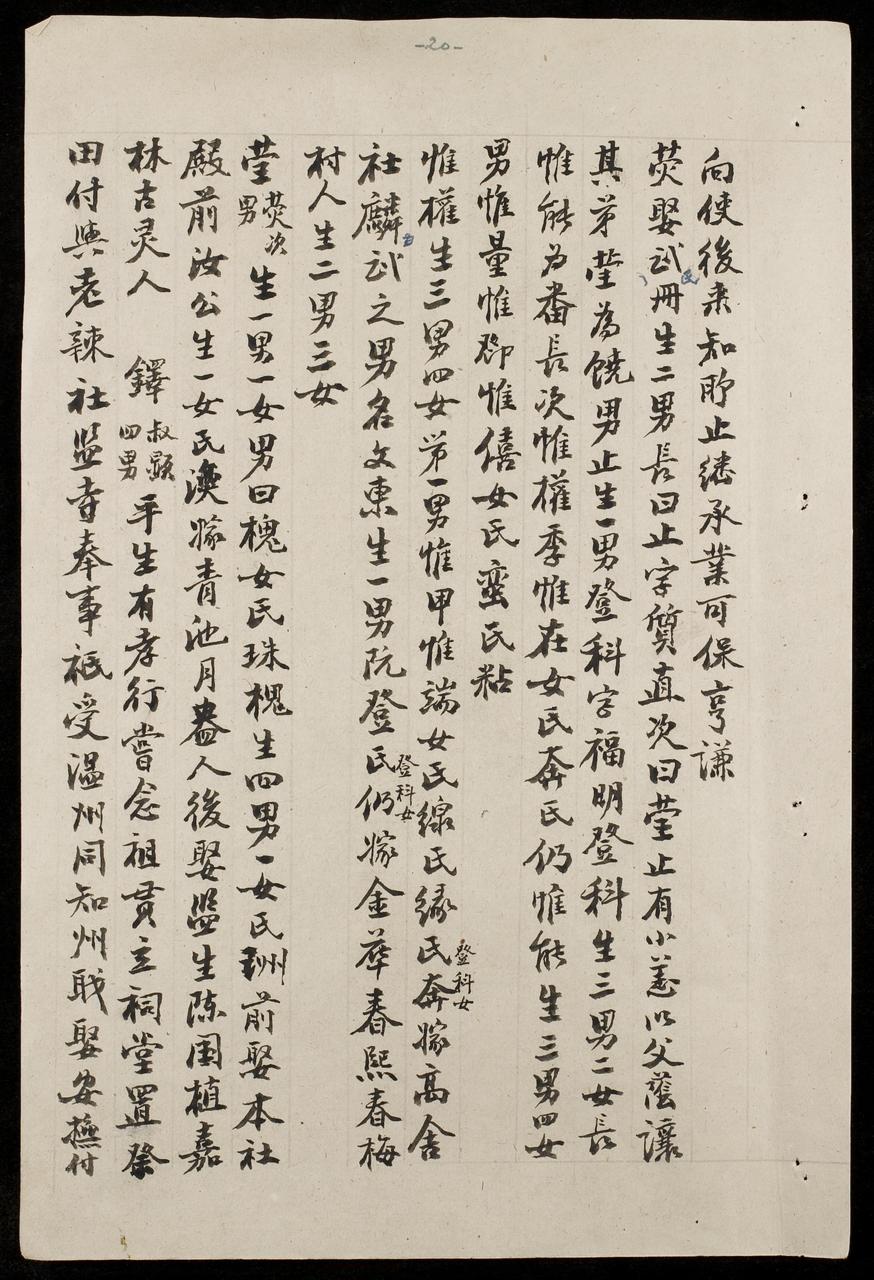 -20-
向使後来知貯止繼承業可保亨謙
荧娶武氏冊生二男長曰止字質直次曰瑩止有小恙以父蔭讓
其弟瑩為饒男止生一男登科字福明登科生三男二女長
惟能为番長次惟權季惟在女氏奔氏仍惟能生三男四女
男惟量惟鄧惟僖女氏蛮氏粘
惟權生三男四女第一男惟甲惟端女氏線氏緣氏奔登科女嫁高舍
社麟武之男名文東生一男阮登氏仍登科女嫁金華春熙春梅
村人生二男三女
瑩荧次男生一男一女男曰槐女氏珠槐生四男一女氏珘前娶本社
殿前汝公生一女氏渙嫁青池月盎人後娶監生陈国植嘉
林古灵人 鐸叔顯四男平生有孝行嘗念祖貫立祠堂置祭
田付與老辣社监寺奉事祗受温州同知州职娶安撫付